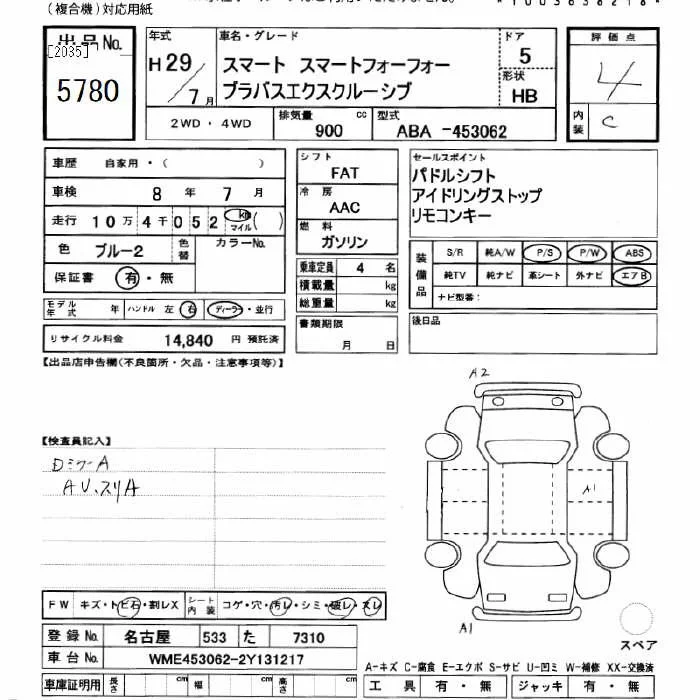 (複合機)対応用紙
出品No.
[2035]
5780
年式
H29/7月
車名・グレード
スマート スマートフォーフォー
ブラバスエクスクルーシブ
ドア
5
形状
HB
評価点
4
内装
C
2WD・4WD
排気量
900
cc
型式
ABA -453062
車歴 自家用・( )
車検 8年 7月
走行 10万4千052 km マイル ( )
色 ブルー2 色替 カラーNo.
保証書 有・無
モデル年式 年 ハンドル 左 右 ディーラー・並行
リサイクル料金 14,840 円 預託済
シフト
FAT
冷房
AAC
燃料
ガソリン
乗車定員 4 名
積載量 kg
総重量 kg
書類期限
月 日
セールスポイント
パドルシフト
アイドリングストップ
リモコンキー
装備品
S/R 純A/W P/S P/W ABS
純TV 純ナビ 革シート 外ナビ エアB
ナビ型番:
後日品
【出品店申告欄(不良箇所・欠品・注意事項等)】
【検査員記入】
A2
A1
A1
FW キズ・トビ石・割レX
シート内装 コゲ・穴・汚レ・シミ・破レ・スレ
登録No. 名古屋 533 た 7310
車台No. WME453062-2Y131217
車庫証明用 長さ cm 幅 cm 高さ cm
スペア
A-キズ C-腐食 E-エクボ S-サビ U-凹ミ W-補修 XX-交換済
工具 有・無 ジャッキ 有・無